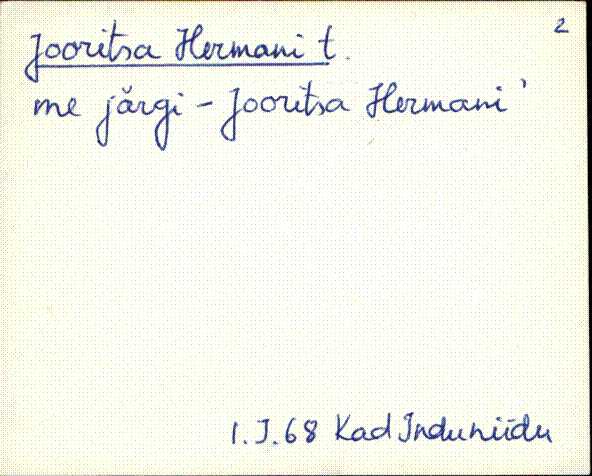 2
Jooritsa Hermani t.
me järgi - Jooritsa Hermani'
1.I.68 Kad Induniidu